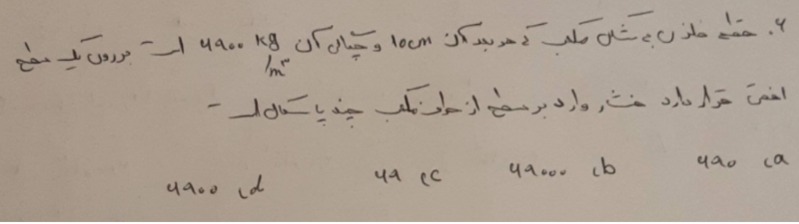 ۶. قطعه فلزی به شکل مکعب که هر بعد آن 10cm و چگالی آن ۷۹۰۰ kg/m³ است بر روی یک سطح
افقی قرار دارد فشار وارد بر سطح از طرف مکعب چند پاسکال است
a) ۷۹۰ b) ۷۹۰۰۰ c) ۷۹ d) ۷۹۰۰